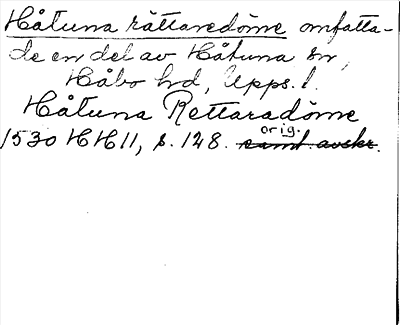 Håtuna rättaredöme omfatta-
de en del av Håtuna sn,
Håbo hd, Upps. l.
Håtuna Rettaradöme
orig.
1530 HH 11, s. 128. samt. avskr.